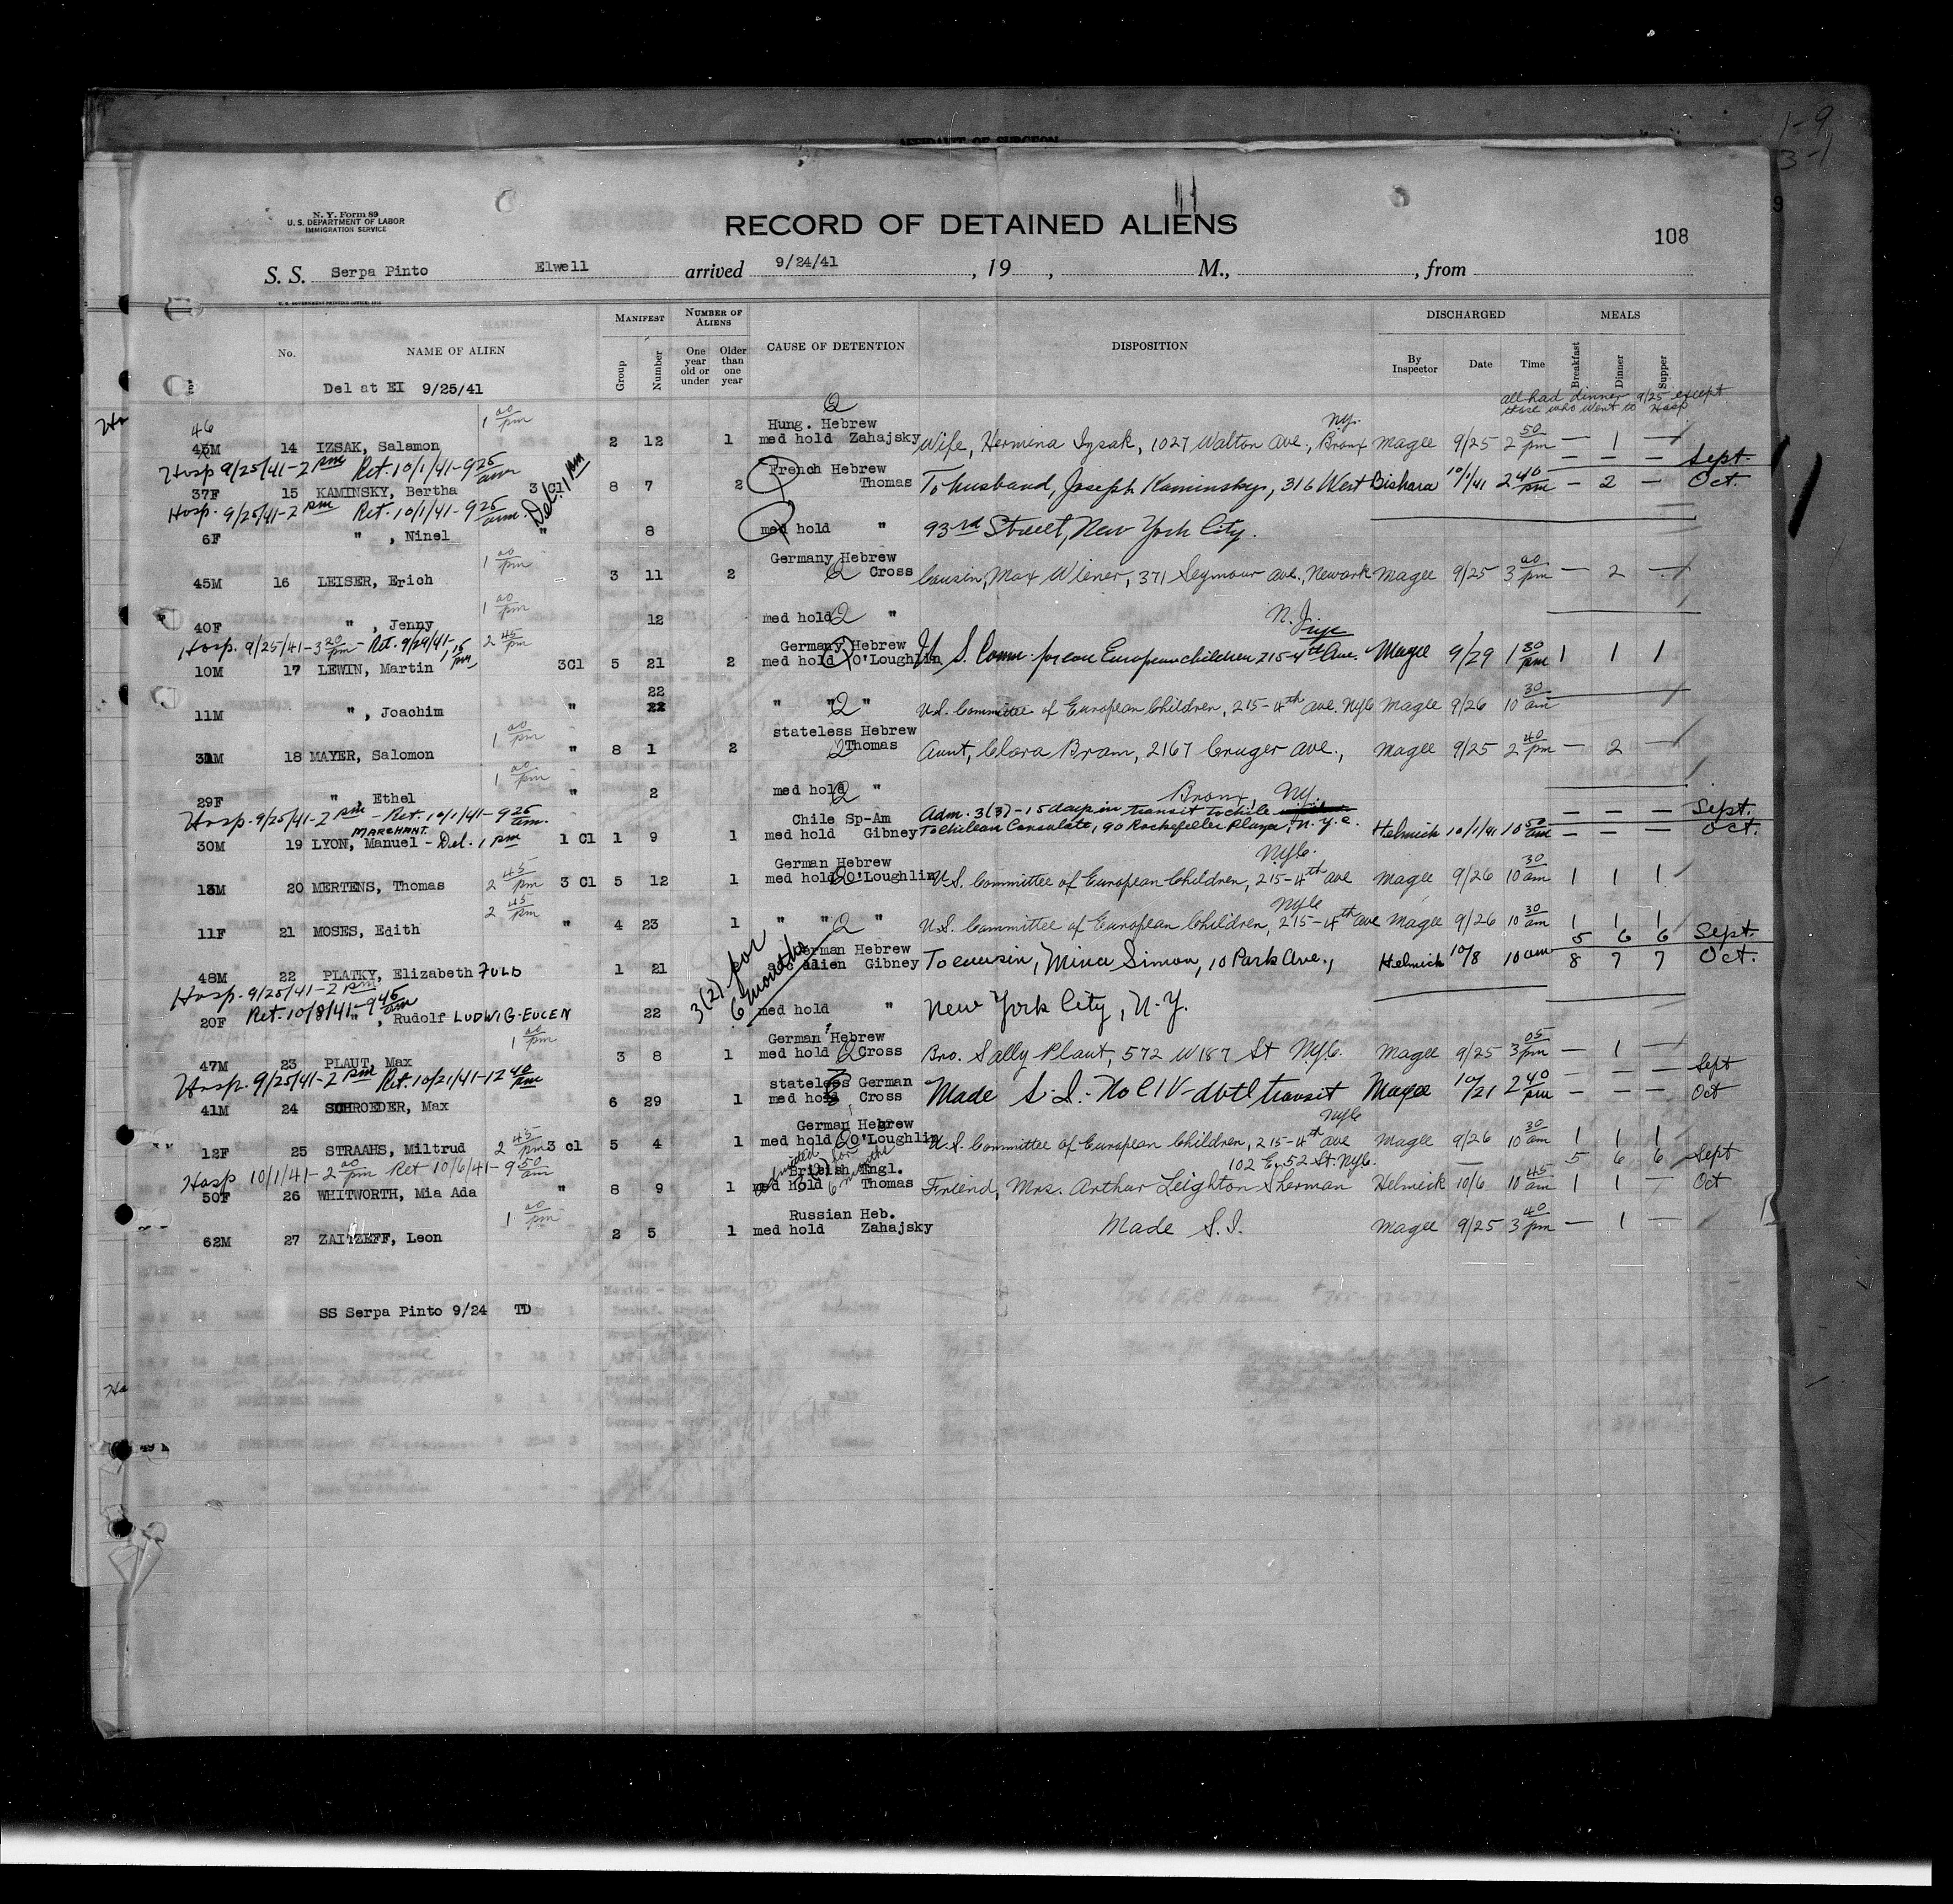 1-9
3-1
AFFIDAVIT OF SURGEON
N. Y. Form 89
U. S. DEPARTMENT OF LABOR
IMMIGRATION SERVICE
RECORD OF DETAINED ALIENS
108
S. S. Serpa Pinto Elwell arrived 9/24/41 , 19 , M., , from
U. S. GOVERNMENT PRINTING OFFICE
No. NAME OF ALIEN MANIFEST Group Number NUMBER OF ALIENS One year old or under Older than one year CAUSE OF DETENTION DISPOSITION DISCHARGED By Inspector Date Time MEALS Breakfast Dinner Supper
Del at EI 9/25/41
all had dinner 9/25 except
those who went to Hosp
46 1 00 pm Q Hung. Hebrew N.Y.
45M 14 IZSAK, Salamon 2 12 1 med hold Zahajsky Wife, Hermina Izsak, 1027 Walton Ave., Bronx Magee 9/25 2 50 pm — 1 —
Hosp 9/25/41-2 pm Ret. 10/1/41-9 25 am French Hebrew — — — Sept.
37F 15 KAMINSKY, Bertha 3 Cl Del. 1 pm 8 7 2 Thomas To husband, Joseph Kaminsky, 316 West Bishara 10/1/41 2 40 pm — 2 — Oct.
Hosp. 9/25/41-2 pm Ret. 10/1/41-9 25 am.
6F " , Ninel " 8 med hold " 93rd Street, New York City.
1 00 pm Germany Hebrew
45M 16 LEISER, Erich 3 11 2 Q Cross Cousin, Max Wiener, 371 Seymour Ave., Newark Magee 9/25 3 00 pm — 2 —
1 00 pm N. J.
40F " , Jenny 12 med hold Q "
Hosp. 9/25/41-3 20 pm - Ret. 9/29/41- 1 15 pm 2 45 pm Germany Hebrew
10M 17 LEWIN, Martin 3Cl 5 21 2 med hold O'Loughlin U. S. Comm. for care European children 215-4th Ave. Magee 9/29 1 30 pm 1 1 1
22
11M " , Joachim " 22 " " Q " U.S. Committee of European Children, 215-4th Ave. NYC Magee 9/26 10 30 am
1 00 pm stateless Hebrew
18 MAYER, Salomon " 8 1 2 Q Thomas Aunt, Clara Bram, 2167 Cruger Ave., Magee 9/25 2 40 pm — 2 —
1 00 pm
29F " , Ethel " 2 med hold Q " Bronx, N.Y.
Hosp. 9/25/41-2 pm - Ret. 10/1/41-9 25 am. Chile Sp-Am Adm. 3(3)-15 days in transit to Chile — — — Sept.
MARCHANT
30M 19 LYON, Manuel - Del. 1 pm 1 Cl 1 9 1 med hold Gibney To Chilean Consulate, 90 Rockefeller Plaza, N.Y.C. Helmich 10/1/41 10 50 am — — — Oct.
German Hebrew NYC.
13M 20 MERTENS, Thomas 2 45 pm 3 Cl 5 12 1 med hold Q O'Loughlin U.S. Committee of European Children, 215-4th Ave Magee 9/26 10 30 am 1 1 1
2 45 pm NYC
11F 21 MOSES, Edith " 4 23 1 " " Q " U.S. Committee of European Children, 215-4th Ave Magee 9/26 10 30 am 1 1 1
3(2) for 6 months German Hebrew 5 6 6 Sept.
48M 22 PLATKY, Elizabeth FULD 1 21 acc alien Gibney To cousin, Mina Simon, 10 Park Ave., Helmich 10/8 10 am 8 7 7 Oct.
Hosp. 9/25/41-2 pm
Ret. 10/8/41-9 45 am
20F " , Rudolf LUDWIG-EUGEN 22 med hold " New York City, N.Y.
1 00 pm German Hebrew
47M 23 PLAUT, Max 3 8 1 med hold Q Cross Bro. Sally Plaut, 572 W 187 St NYC. Magee 9/25 3 05 pm — 1 —
Hosp. 9/25/41-2 pm Ret. 10/21/41-12 40 pm stateless German — — — Sept
41M 24 SCHROEDER, Max 6 29 1 med hold Cross Made S.I.- No CIV-dbtl transit Magee 10/21 2 40 pm — — — Oct
German Hebrew NYC
12F 25 STRAAHS, Miltrud 2 45 pm 3 cl 5 4 1 med hold Q O'Loughlin U.S. Committee of European Children, 215-4th Ave Magee 9/26 10 30 am 1 1 1
Hosp 10/1/41-2 00 pm Ret 10/6/41-9 50 am admitted 3(2) for 6 months British Engl. 102 E. 52 St. NYC. 5 6 6 Sept
50F 26 WHITWORTH, Mia Ada " 8 9 1 med hold Thomas Friend, Mrs. Arthur Leighton Sherman Helmich 10/6 10 45 am 1 1 — Oct
1 00 pm Russian Heb.
62M 27 ZAITZEFF, Leon 2 5 1 med hold Zahajsky Made S.I. Magee 9/25 3 40 pm — 1 —
SS Serpa Pinto 9/24 TD